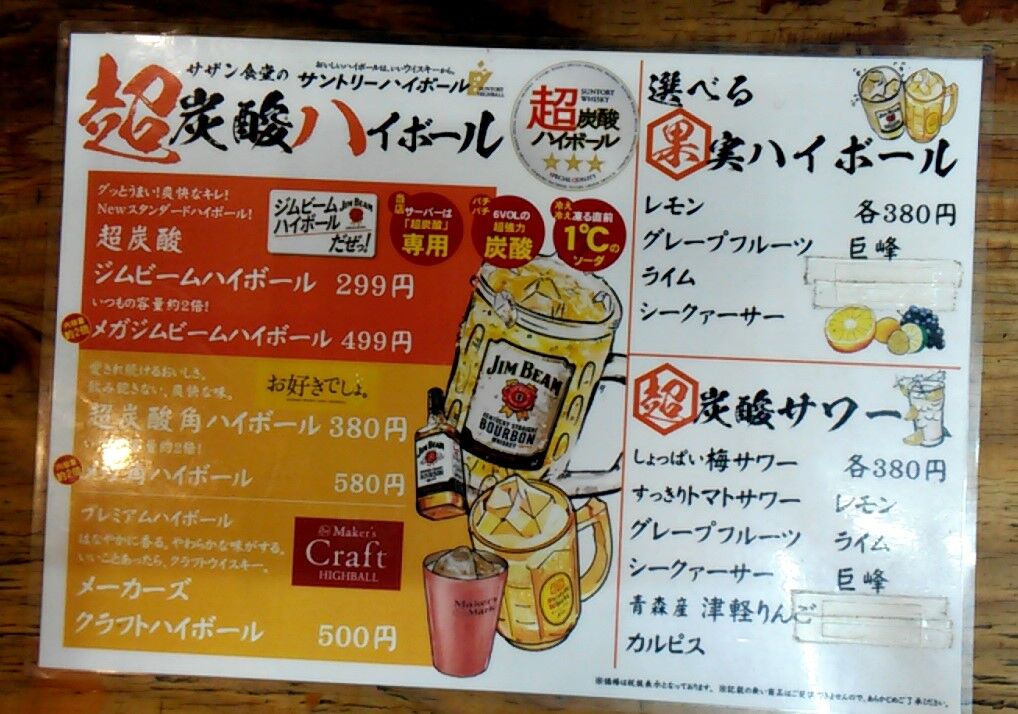 サザン食堂の
おいしいハイボールは、いいウイスキーから。
サントリーハイボール
SUNTORY HIGHBALL
超炭酸ハイボール
SUNTORY WHISKY
超炭酸
ハイボール
SPECIAL QUALITY
グッとうまい!爽快なキレ!
Newスタンダードハイボール!
ジムビーム
ハイボール
だぜっ!
JIM BEAM
当店
サーバーは
「超炭酸」
専用
パチパチ
6VOLの
超強力
炭酸
冷え冷え
凍る直前
1℃の
ソーダ
超炭酸
ジムビームハイボール 299円
いつもの容量約2倍!
メガジムビームハイボール 499円
愛され続けるおいしさ。
飲み飽きない、爽快な味。
お好きでしょ。
超炭酸角ハイボール 380円
容量約2倍!
角ハイボール 580円
プレミアムハイボール
はなやかに香る。やわらかな味がする。
いいことあったら、クラフトウイスキー。
Maker's
Craft
HIGHBALL
メーカーズ
クラフトハイボール 500円
JIM BEAM
KENTUCKY STRAIGHT
BOURBON
WHISKEY
JIM BEAM
Maker's
Mark
選べる
果実ハイボール
レモン 各380円
グレープフルーツ 巨峰
ライム
シークァーサー
超炭酸サワー
しょっぱい梅サワー 各380円
すっきりトマトサワー レモン
グレープフルーツ ライム
シークァーサー 巨峰
青森産 津軽りんご
カルピス
※価格は税抜表示となっております。 ※記載の無い商品はご提供できませんので、あらかじめご了承ください。